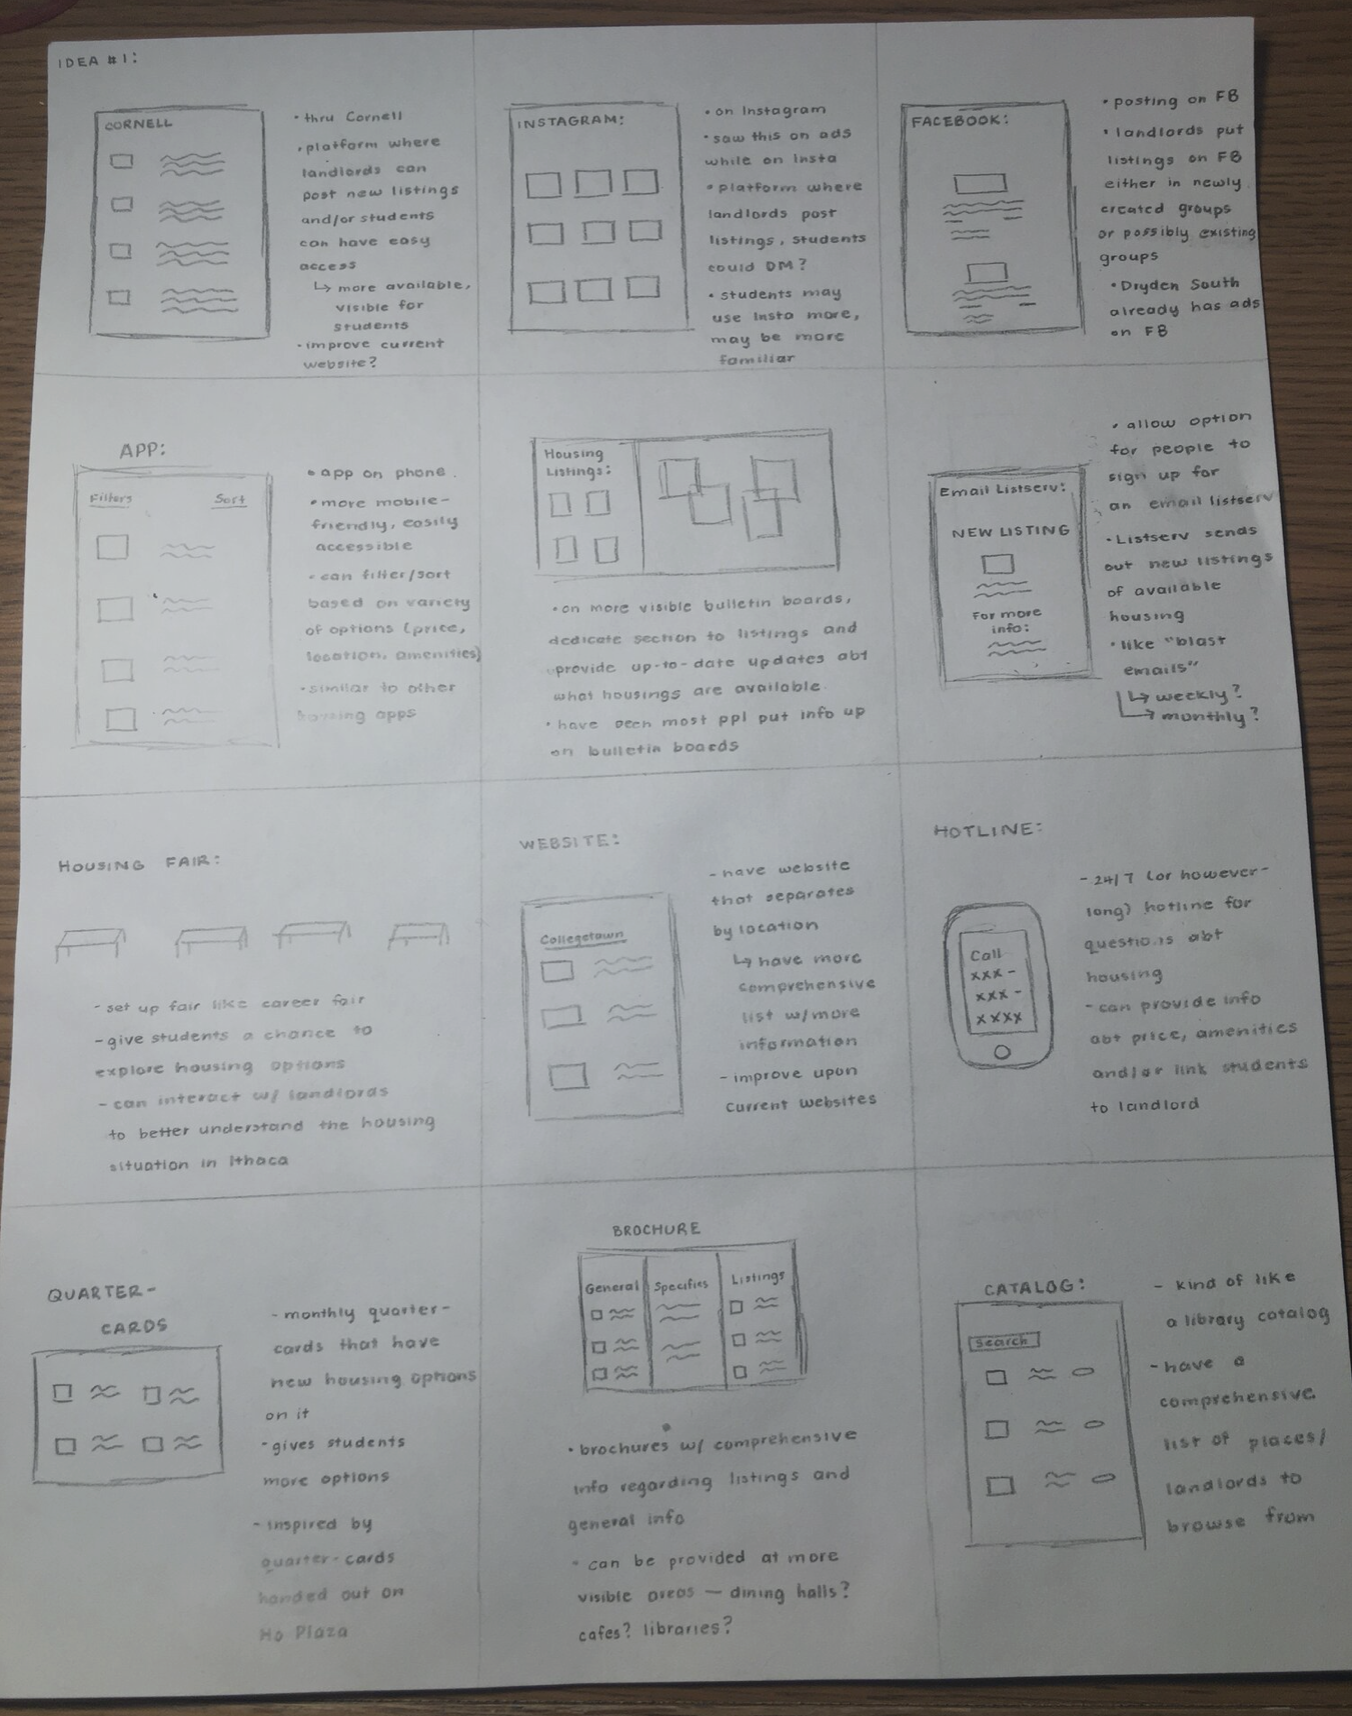 IDEA #1:
CORNELL
• thru Cornell
• platform where
landlords can
post new listings
and/or students
can have easy
access
↳ more available,
visible for
students
• improve current
website?
INSTAGRAM:
• on Instagram
• saw this on ads
while on Insta
• platform where
landlords post
listings, students
could DM?
• students may
use Insta more,
may be more
familiar
FACEBOOK:
• posting on FB
• landlords put
listings on FB
either in newly
created groups
or possibly existing
groups
• Dryden South
already has ads
on FB
APP:
Filters Sort
• app on phone
• more mobile-
friendly, easily
accessible
• can filter/sort
based on variety
of options (price,
location, amenities)
• similar to other
housing apps
Housing
Listings:
• on more visible bulletin boards,
dedicate section to listings and
provide up-to-date updates abt
what housings are available.
• have seen most ppl put info up
on bulletin boards
Email Listserv:
NEW LISTING
For more
info:
• allow option
for people to
sign up for
an email listserv
• Listserv sends
out new listings
of available
housing
• like "blast
emails"
↳ weekly?
↳ monthly?
HOUSING FAIR:
- set up fair like career fair
- give students a chance to
explore housing options
- can interact w/ landlords
to better understand the housing
situation in Ithaca
WEBSITE:
Collegetown
- have website
that separates
by location
↳ have more
comprehensive
list w/more
information
- improve upon
current websites
HOTLINE:
Call
xxx -
xxx -
xxxx
- 24/7 (or however-
long) hotline for
questions abt
housing
- can provide info
abt price, amenities
and/or link students
to landlord
QUARTER-
CARDS
- monthly quarter-
cards that have
new housing options
on it
- gives students
more options
- inspired by
quarter-cards
handed out on
Ho Plaza
BROCHURE
General Specifics Listings
• brochures w/ comprehensive
info regarding listings and
general info
• can be provided at more
visible areas — dining halls?
cafes? libraries?
CATALOG:
Search
- kind of like
a library catalog
- have a
comprehensive
list of places/
landlords to
browse from